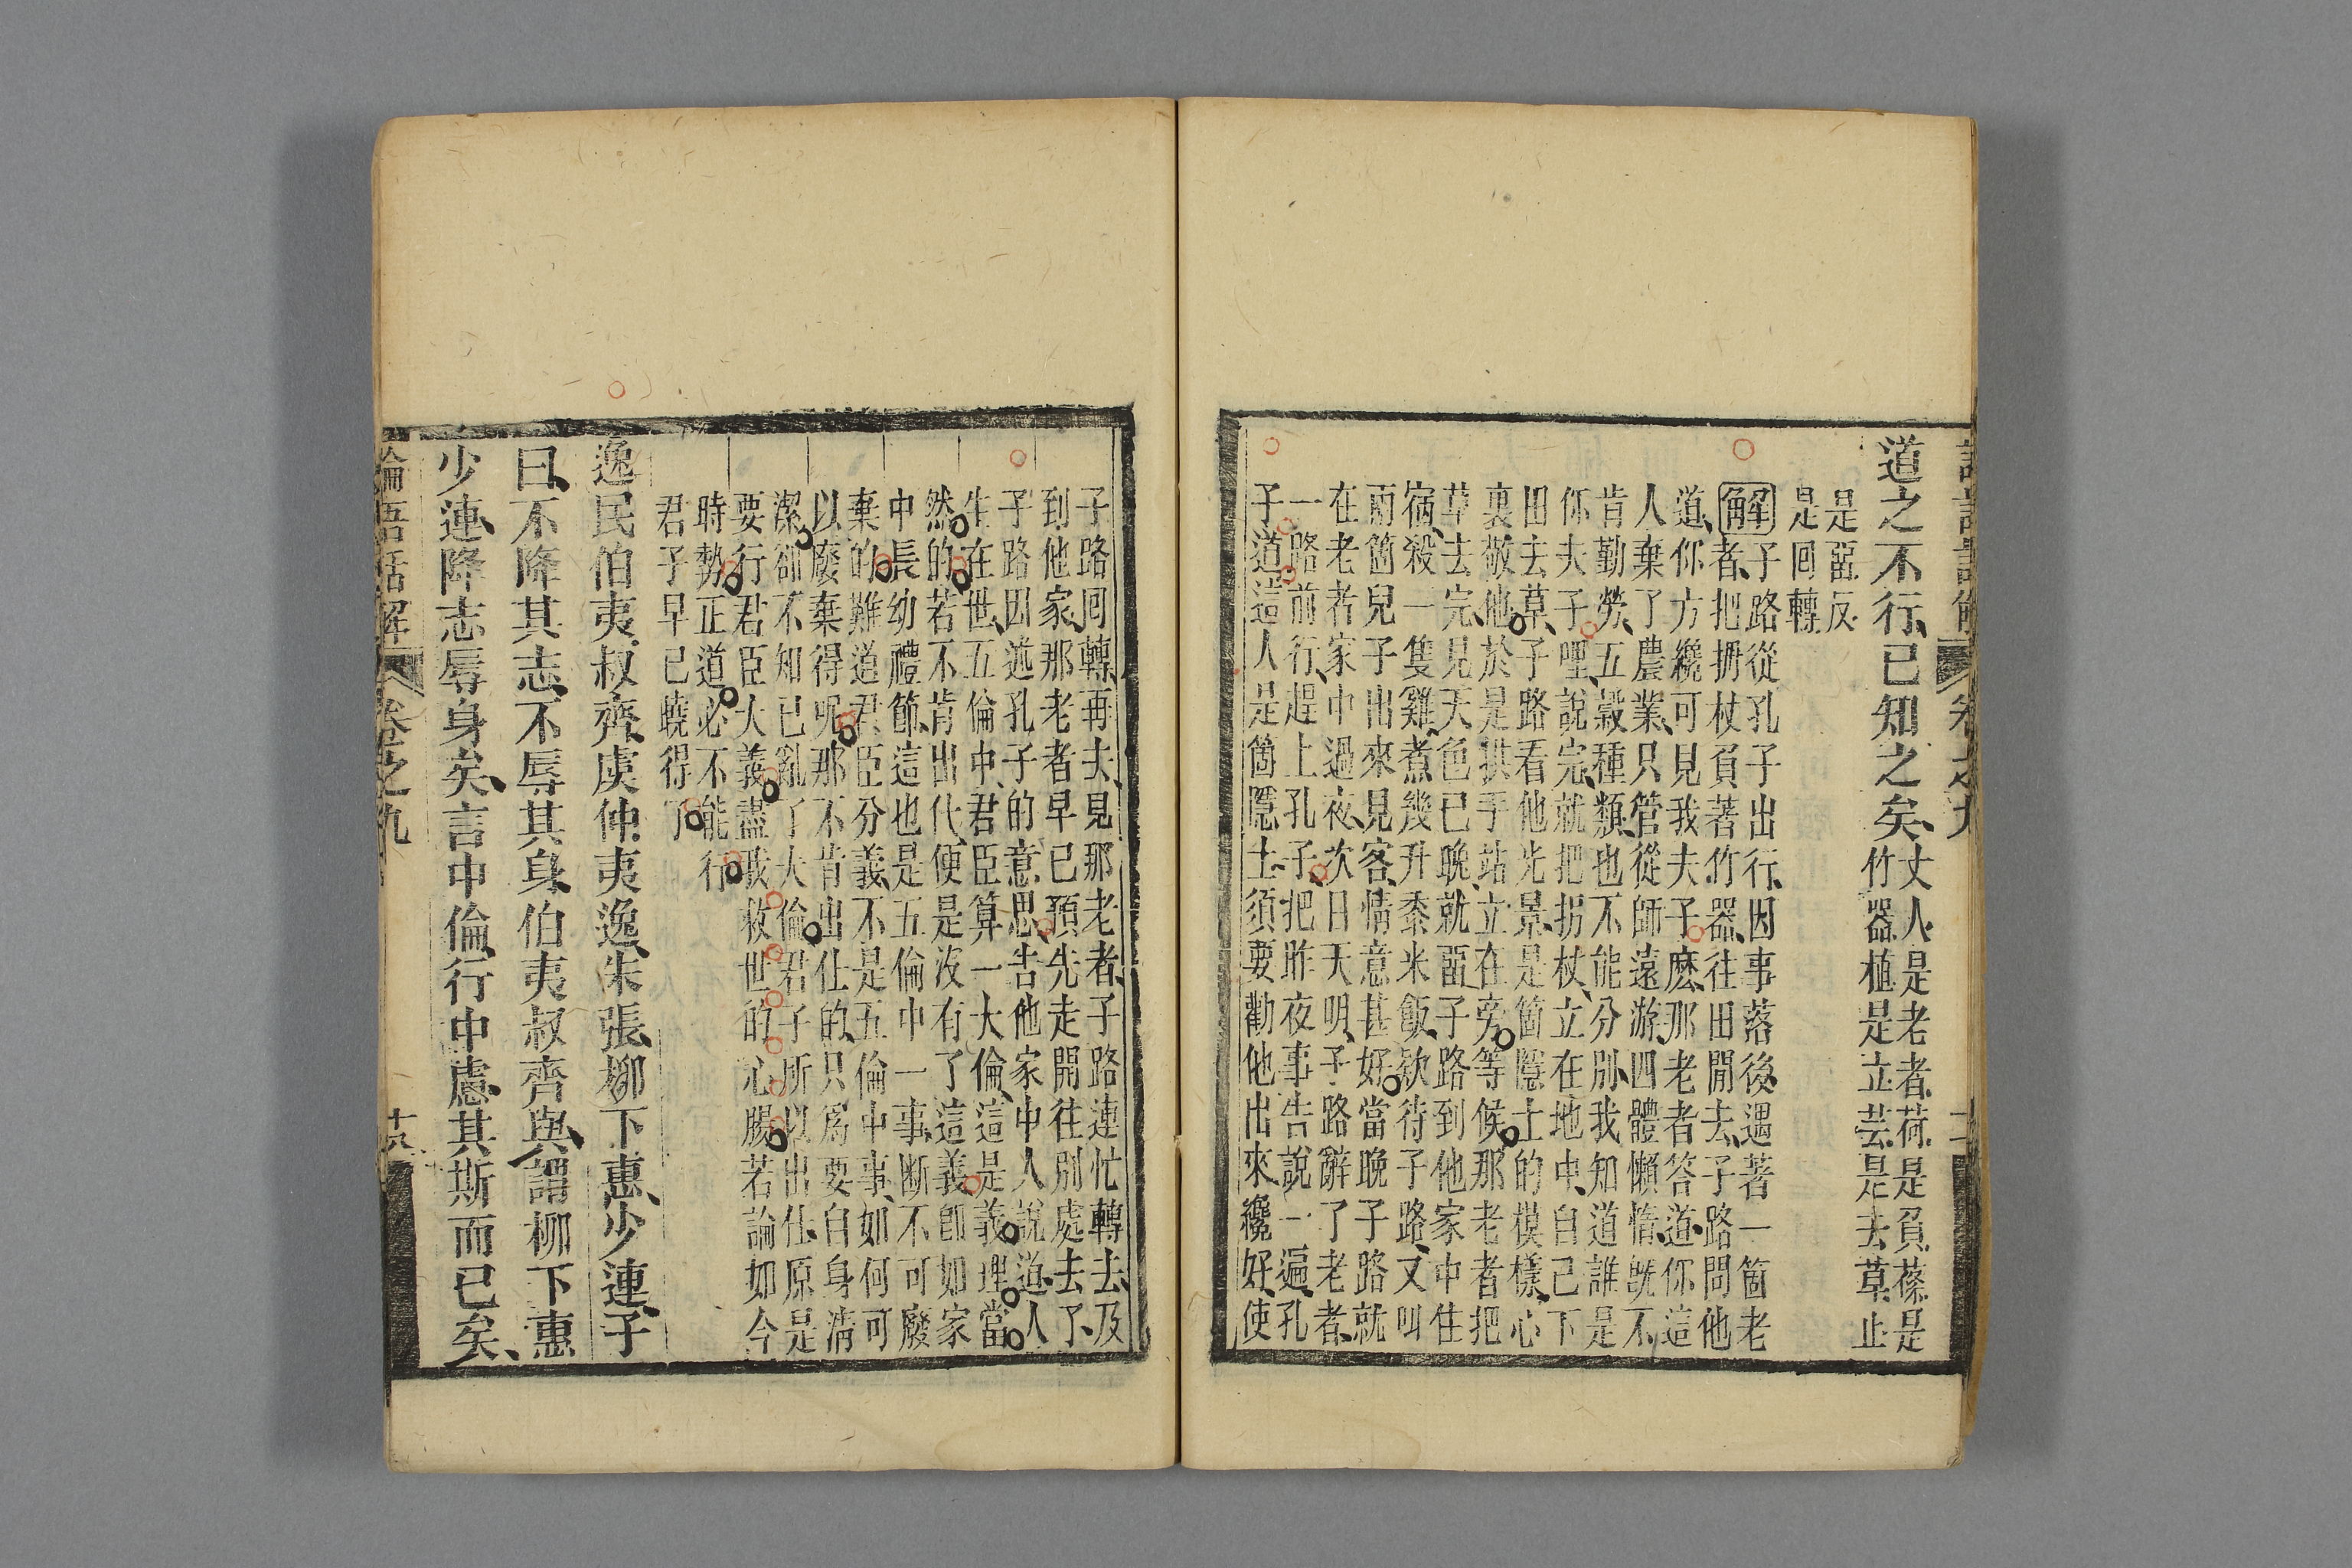 道之不行、已知之矣、丈人是老者、荷是負、蓧是
竹器、植是立、芸是去草、止
是畱、反
是囘轉
解 子路從孔子出行、因事落後、遇著一箇老
者、把拐杖負著竹器、往田閒去、子路問他
道、你方纔可見我夫子麽、那老者答道、你這
人棄了農業、只管從師遠游、四體懶惰、旣不
肯勤勞、五穀種類、也不能分別、我知道誰是
你夫子哩、說完、就把拐杖、立在地中、自己下
田去草、子路看他光景、是箇隱士的模樣、心
裏敬他、於是拱手站立在旁等候、那老者把
草去完、見天色已晚、就畱子路到他家中住
宿、殺一隻雞、煮幾升黍米飯、欵待子路、又叫
兩箇兒子出來見客、情意甚好、當晚子路就
在老者家中過夜、次日天明、子路辭了老者、
一路前行、趕上孔子、把昨夜事告說一遍、孔
子道、這人是箇隱士、須要勸他出來纔好、使
子路囘轉、再去見那老者、子路連忙轉去、及
到他家、那老者早已預先走開往別處去了、
子路因述孔子的意思、告他家中人說道、人
生在世、五倫中、君臣算一大倫、這是義理當
然的、若不肯出代、便是沒有了這義、卽如家
中長幼禮節、這也是五倫中一事、斷不可廢
棄的、難道君臣分義、不是五倫中事、如何可
以廢棄得呢、那不肯出仕的、只爲要自身清
潔、卻不知已亂了大倫、君子所以出仕、原是
要行君臣大義、盡我救世的心腸、若論如今
時勢、正道必不能行、
君子早已曉得了、
逸民伯夷、叔齊、虞仲、夷逸、朱張、柳下惠、少連、子
曰、不降其志、不辱其身、伯夷叔齊與、謂柳下惠
少連、降志辱身矣、言中倫、行中慮、其斯而已矣、
論語話解 卷之九 十八